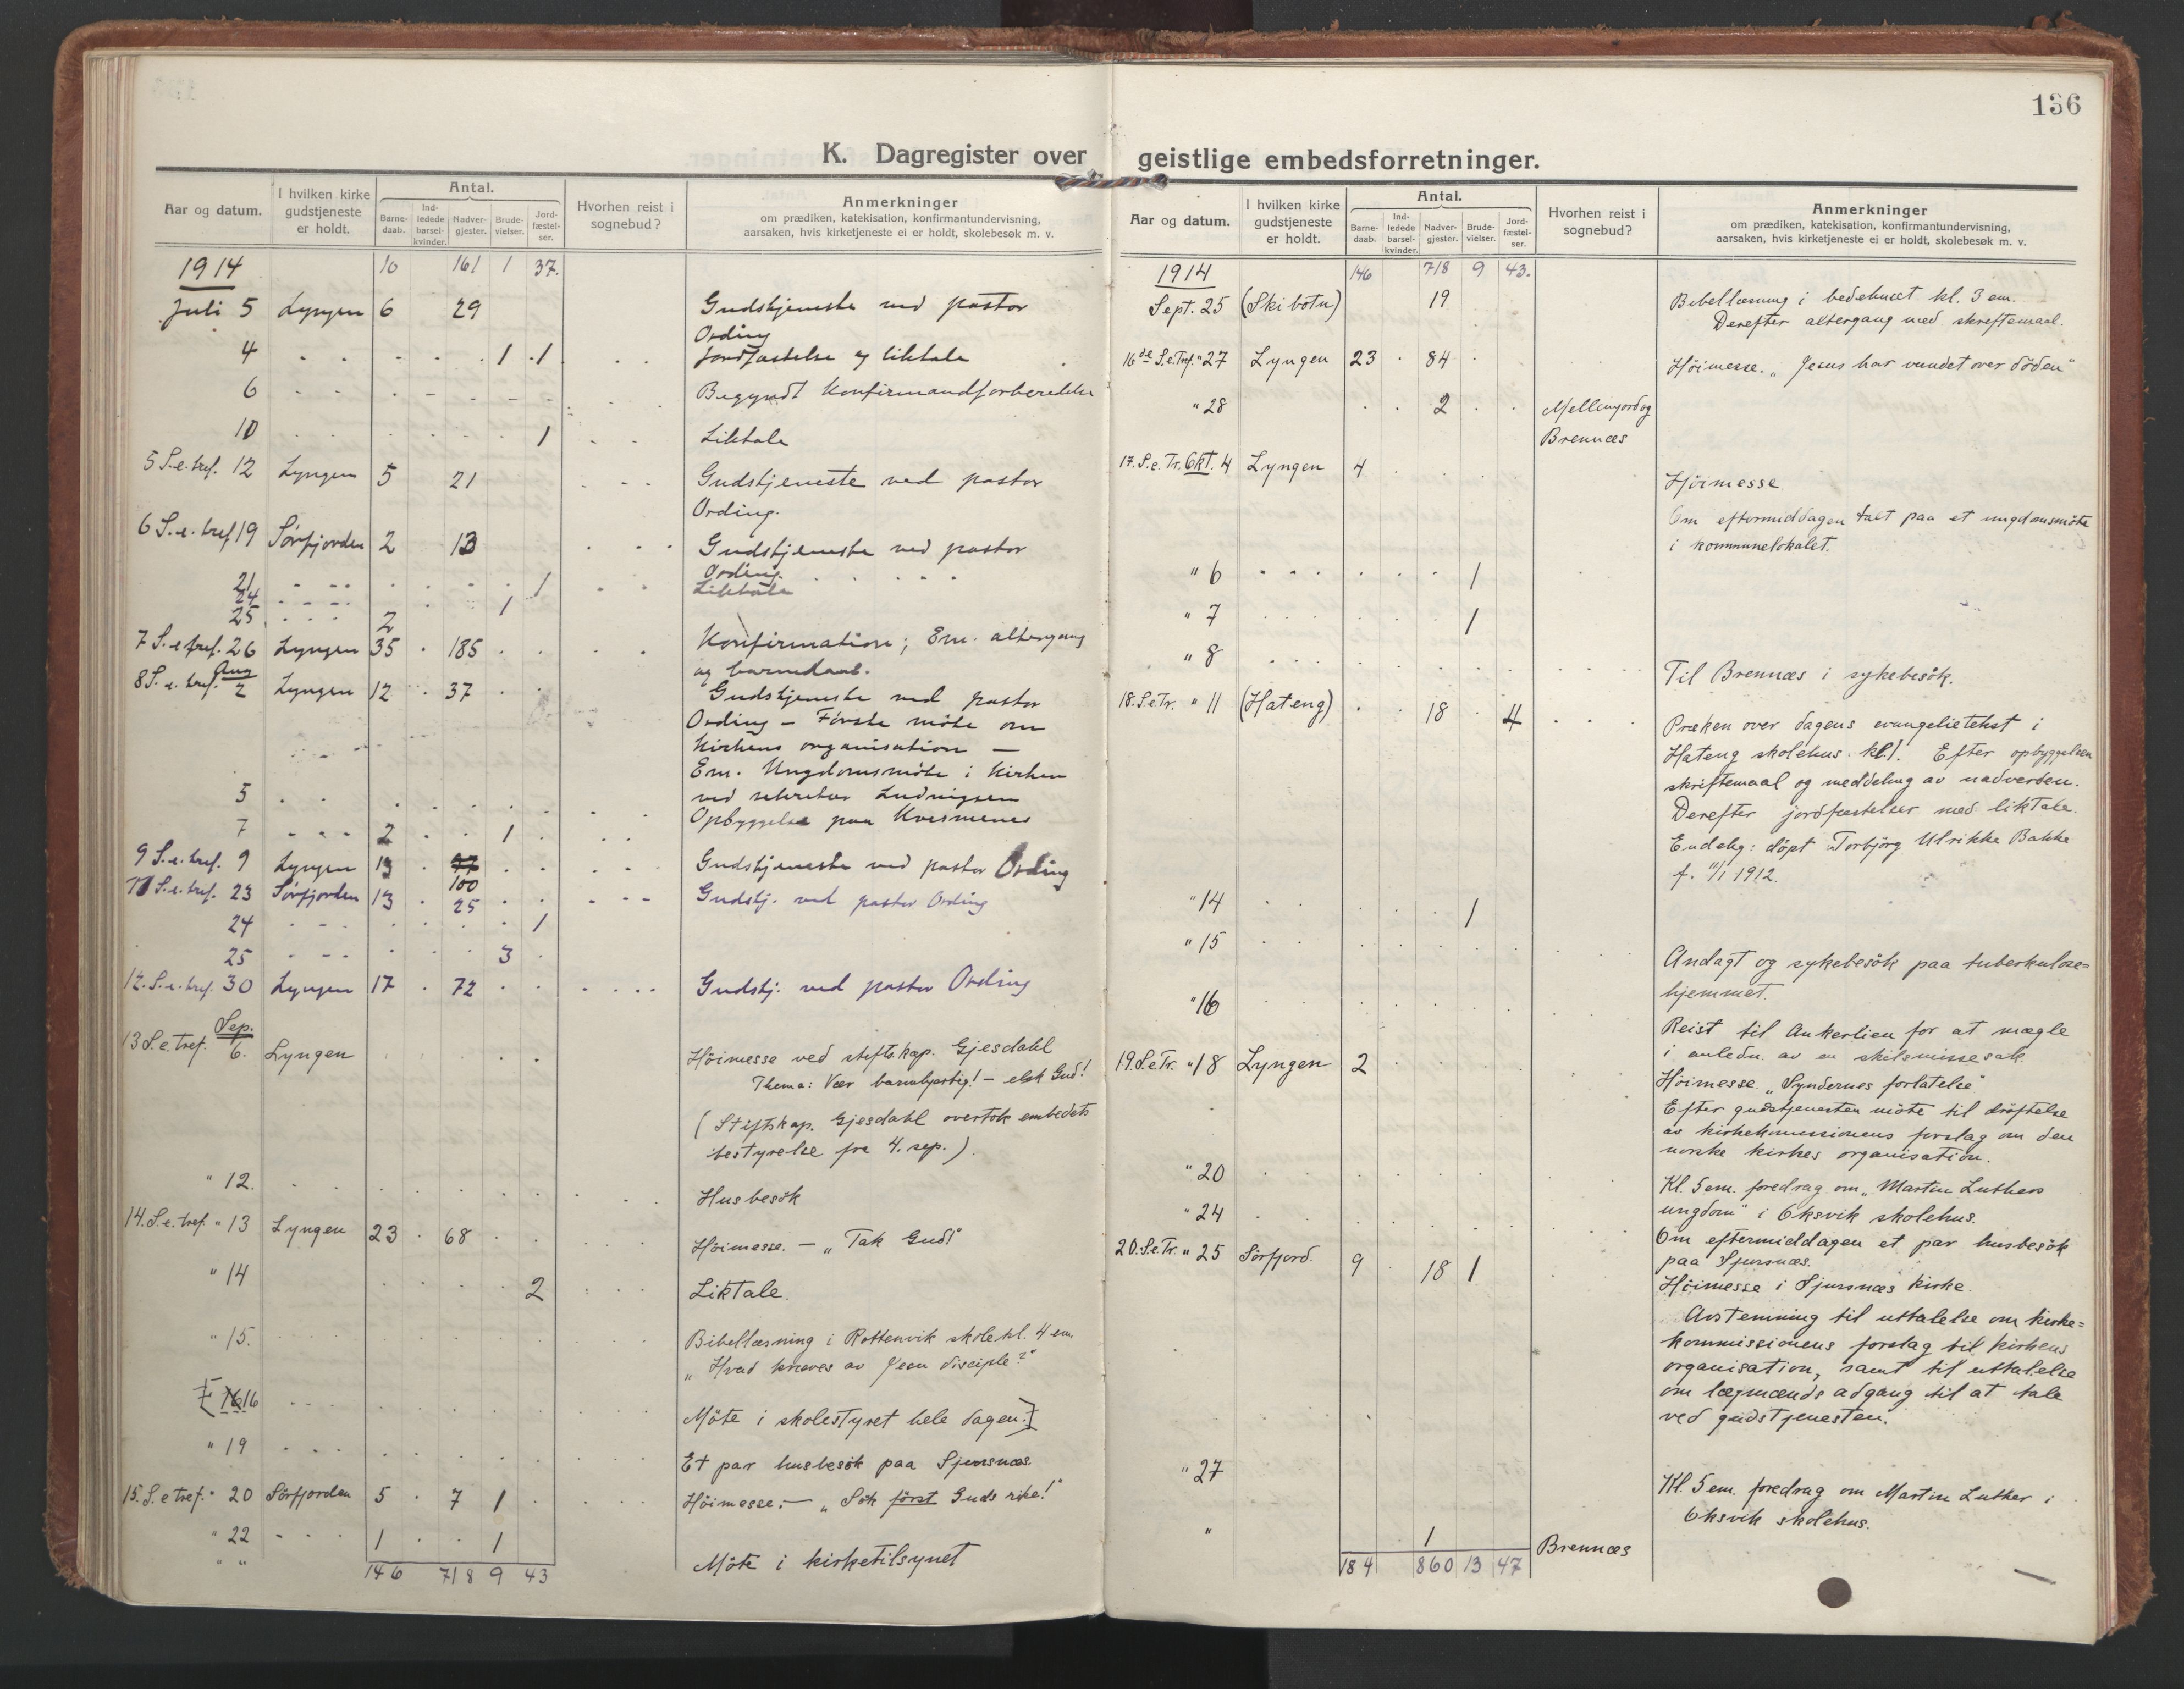 136
K. Dagregister over geistlige embedsforretninger.
Aar og datum. I hvilken kirke gudstjeneste er holdt. Antal. Barne-daab. Ind-ledede barsel-kvinder. Nadver-gjester. Brude-vielser. Jord-fæstel-ser. Hvorhen reist i sognebud? Anmerkninger om prædiken, katekisation, konfirmantundervisning, aarsaken, hvis kirketjeneste ei er holdt, skolebesøk m. v.
1914 10 161 1 37.
Juli 5 Lyngen 6 29 Gudstjeneste ved pastor
Ording
4 1 1 Jordfæstelse og liktale
6 Begyndt Konfirmandforberedelse
10 1 Liktale
5 S. e. tref. 12 Lyngen 5 21 Gudstjeneste ved pastor
Ording.
6 S. e. tref 19 Sørfjorden 2 13 Gudstjeneste ved pastor
Ording.
21 1 Liktale
24 1
25 2
7 S. e. tref. 26 Lyngen 35 185 Konfirmation; Em. altergang
og barnedaab.
8 S. e. tref. Aug 2 Lyngen 12 37 Gudstjeneste ved pastor
Ording – Første møte om
Kirkens organisation –
Em. Ungdomsmøte i Kirken
ved sekretær Ludvigsen
5 Opbyggelse paa Kvesmenes
7 2 1
9 S. e. tref. 9 Lyngen 13 100 Gudstjeneste ved pastor Ording
11 S. e. tref. 23 Sørfjorden 13 25 Gudstj. ved pastor Ording
24 1
25 3
12. S. e. tref. 30 Lyngen 17 72 Gudstj. ved pastor Ording
13 S. e. tref. Sep. 6. Lyngen Höimesse ved stiftskap. Gjesdahl
Thema: Vær barmhjertig! – elsk Gud!
(Stiftskap. Gjesdahl overtok embedets
bestyrelse fra 4. sep.)
" 12. Husbesök
14. S. e. tref. " 13 Lyngen 23 68 Höimesse. – „Tak Gud!"
" 14 2 Liktale.
" 15. Bibellæsning i Rottenvik skole kl. 4 em.
„Hvad kræves av Jesu disciple?"
[16 Möte i skolestyret hele dagen.]
" 19 Et par husbesök paa Sjursnæs.
15. S. e tref. " 20 Sörfjorden 5 7 1 Höimesse: – „Sök först Guds rike!"
" 22 1 1
" " Möte i kirketilsynet
146 718 9 43
Aar og datum. I hvilken kirke gudstjeneste er holdt. Antal. Barne-daab. Ind-ledede barsel-kvinder. Nadver-gjester. Brude-vielser. Jord-fæstel-ser. Hvorhen reist i sognebud? Anmerkninger om prædiken, katekisation, konfirmantundervisning, aarsaken, hvis kirketjeneste ei er holdt, skolebesøk m. v.
1914 146 718 9 43.
Sept. 25 (Skibotn) 19 Bibellæsning i bedehuset kl. 3 em.
Derefter altergang med skriftemaal.
16de S. e. Tref. " 27 Lyngen 23 84 Höimesse. „Jesus har vundet over döden"
" 28 2 Mellemjord og
Brennæs
17. S. e. Tr. Okt. 4 Lyngen 4 Höimesse
Om eftermiddagen talt paa et ungdomsmöte
i kommunelokalet.
" 6 1
" 7 1
" 8 Til Brennæs i sykebesök.
18. S. e Tr. " 11 (Hateng) 18 4 Præken over dagens evangelietekst i
Hateng skolehus kl 1. Efter opbyggelsen
skriftemaal og meddeling av nadverden.
Derefter jordfæstelser med liktale.
Endelig: döpt Torbjörg Ulrikke Bakke
f. 11/1 1912.
" 14 1
" 15 Andagt og sykebesök paa tuberkulose=
hjemmet.
" 16 Reist til Ankerlien for at mægle
i anledn. av en skilsmissesak.
19. S. e Tr. " 18 Lyngen 2 Höimesse. „Syndernes forlatelse"
Efter gudstjenesten möte til dröftelse
av kirkekommissionens forslag om den
norske kirkes organisation.
" 20 Kl. 5 em. foredrag om „Martin Luthers
ungdom" i Oksvik skolehus.
" 24 Om eftermiddagen et par husbesök
paa Sjursnæs.
20. S. e Tr. " 25 Sörfjord. 9 18 1 Höimesse i Sjursnæs kirke.
Avstemning til uttalelse om kirke=
kommissionens forslag til kirkens
organisation, samt til uttalelse
om lægmænds adgang til at tale
ved gudstjenesten.
" 27 Kl. 5 em. foredrag om Martin Luther i
Oksvik skolehus.
" 1 Brennæs
184 860 13 47